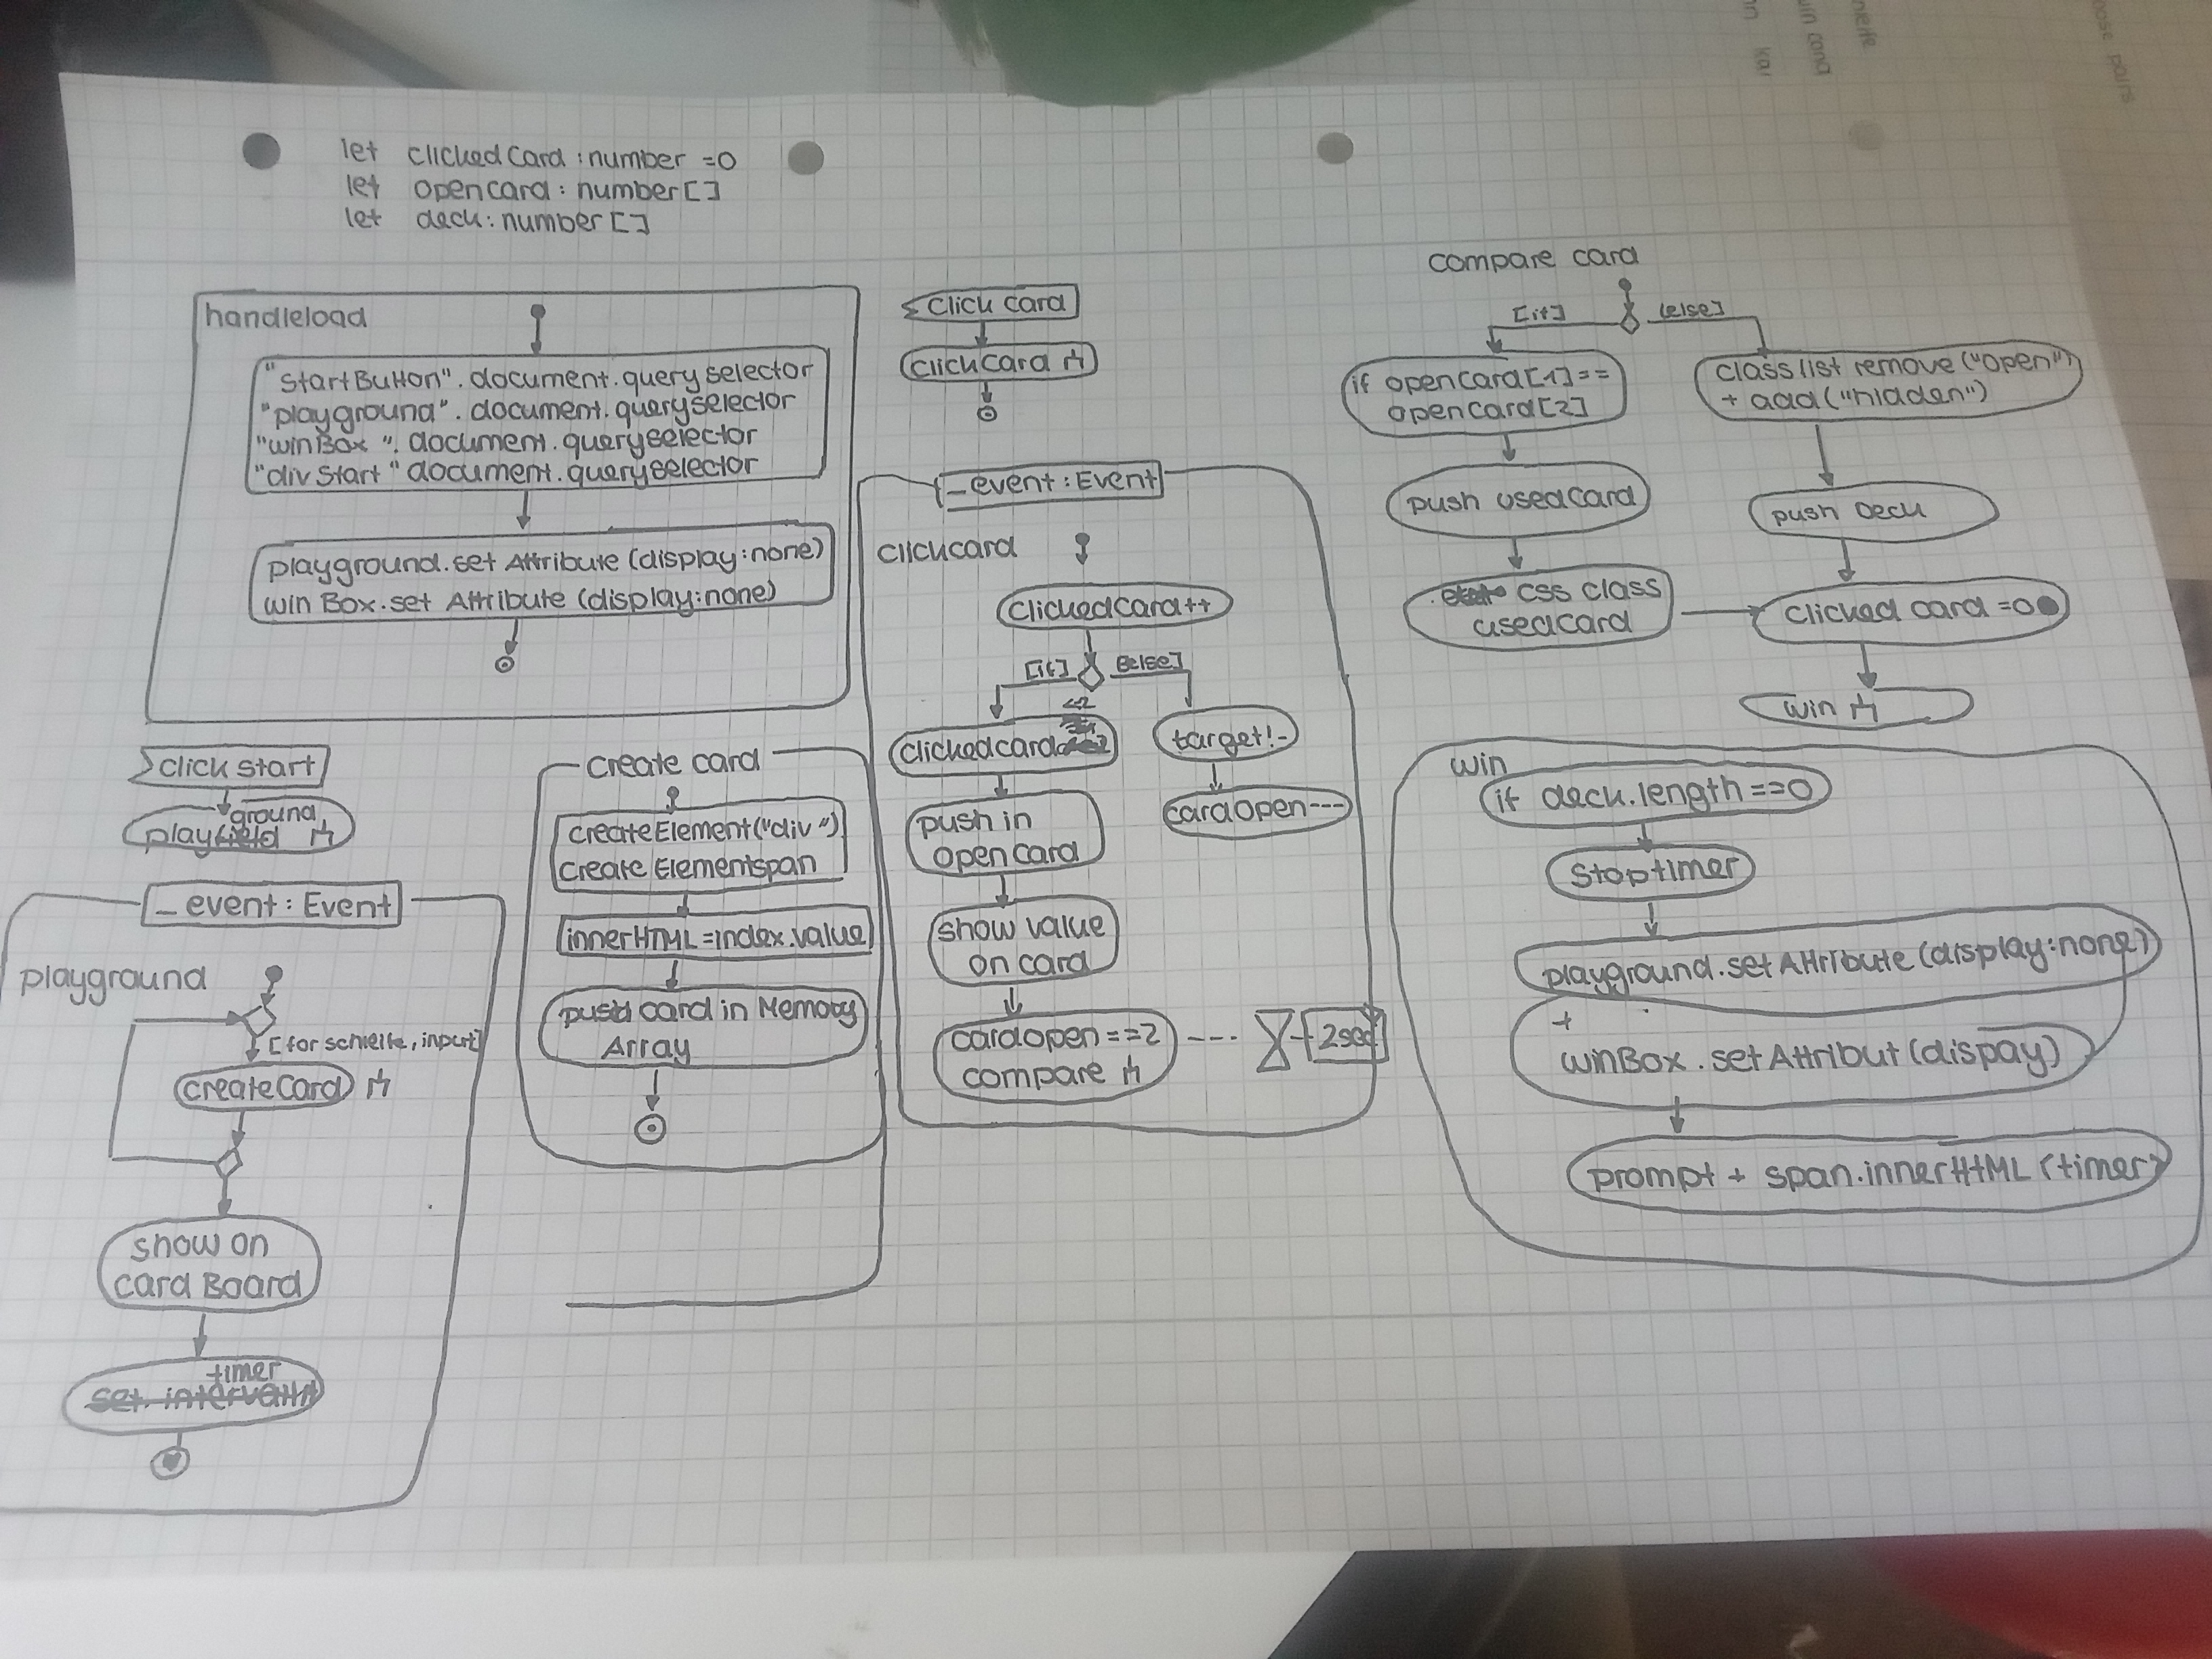 let clickedCard : number =0
let opencard : number[]
let deck : number[]
handleload
"startButton". document. queryselector
"playground". document. queryselector
"winBox". document. queryselector
"div Start" document. queryselector
playground.set Attribute (display:none)
win Box.set Attribute (display:none)
click start
ground
playfield
_ event : Event
playground
[for schleife, input]
createCard
show on
card Board
timer
create card
createElement("div")
create Elementspan
innerHTML=index.value
push card in Memory
Array
click card
clickcard
_ event : Event
clickcard
clickedcard++
[if] [else]
<2
clickedcard
target!-
push in
open card
cardopen---
show value
on card
cardopen==2 ---- 2sec
compare
compare card
[if] [else]
if opencard[1]==
opencard[2]
classlist remove ("open")
+ add ("hidden")
push usedcard
push Deck
css class
usedcard
clicked card =0
win
win
if deck.length ==0
Stoptimer
playground.setAttribute (display:none)
+
winBox . setAttribut (dispay)
prompt + span.innerHtML (timer)